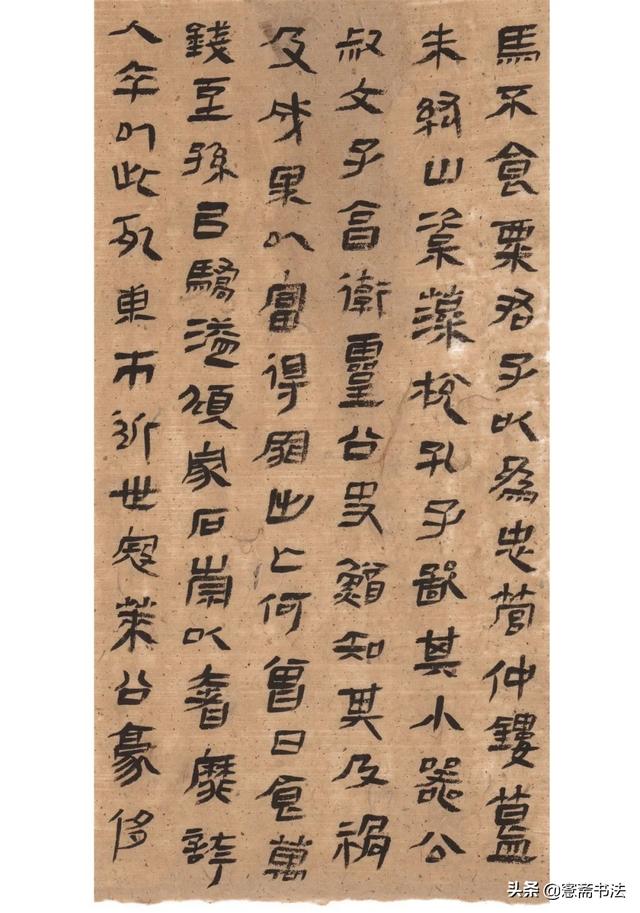 馬不食粟君子以為忠管仲鏤簋
朱紘山楶藻梲孔子鄙其小器公
叔文子享衛靈公史鰌知其及禍
及戍果以富得罪出亡何曾日食萬
錢至孫以驕溢傾家石崇以奢靡誇
人卒以此死東市近世寇萊公豪侈
头条 @愙斋书法